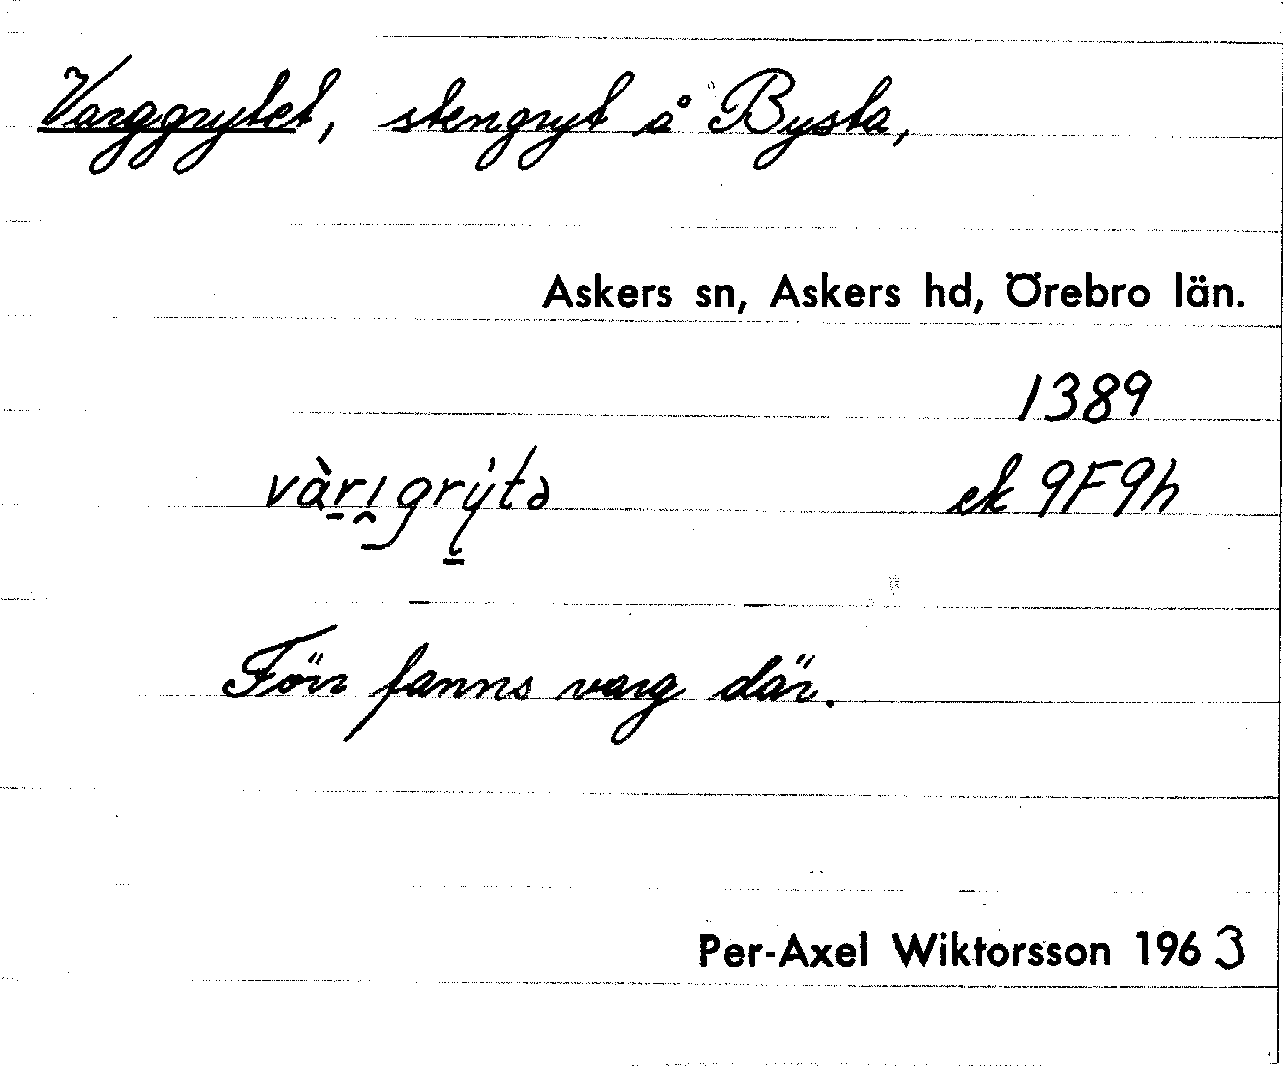 Varggrytet, stengryt å Bysta,
Askers sn, Askers hd, Örebro län.
1389
vàrı̯grýtə ek 9F9h
Förr fanns varg där.
Per-Axel Wiktorsson 1963